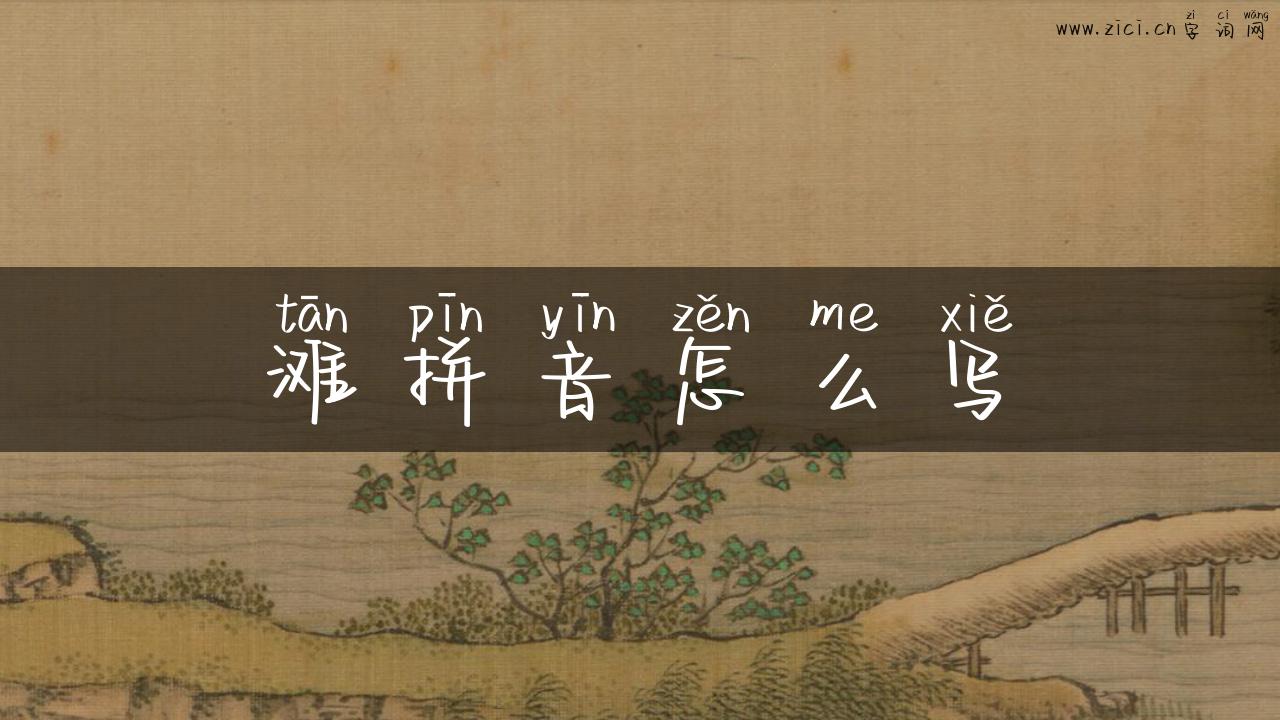 zì cí wǎng
www.zici.cn 字 词 网
tān pīn yīn zěn me xiě
滩 拼 音 怎 么 写